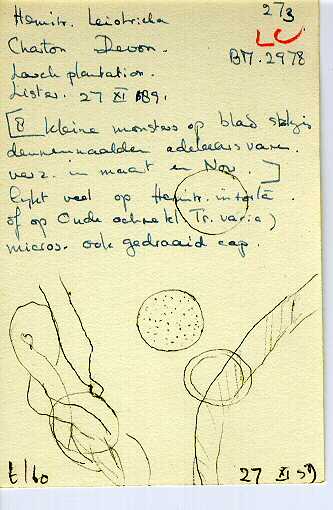 Hemitr. leiotricha
273
LC
Charton Devon.
BM. 2978
Larch plantation.
Lister. 27 XI 1889.
[8 kleine monsters op blad
dennennaalden adelaarsvaren.
verz. in maart en Nov.]
lijkt veel op Hemitr. intorta
of op Oude ochrekl. Tr. varia)
micros. ook gedraaid cap.
t/60
27 XI 59